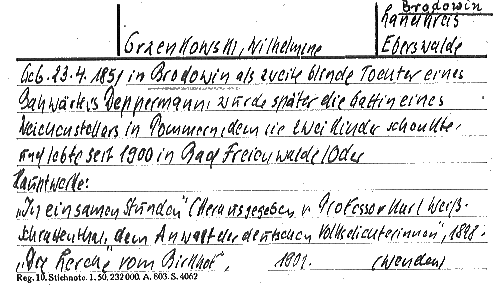 Brodowin
Landkreis
Grzenkowski, Wilhelmine
Eberswalde
Geb. 23.4.1851 in Brodowin als zweite blinde Tochter eines
Bahnwärters Deppermann, wurde später die Gattin eines
Weichenstellers in Pommern, dem sie zwei Kinder schenkte,
und lebte seit 1900 in Bad Freienwalde/Oder
Hauptwerke:
„In einsamen Stunden" (Herausgegeben v. Professor Karl Weiß-
Schrattenthal, dem Anwalt der deutschen Volksdichterinnen", 1898.
„Der Lerche vom Birkhof", 1901. (Wenden)
Reg. 10. Stichnote. 1. 50. 232 000. A. 803. S. 4062